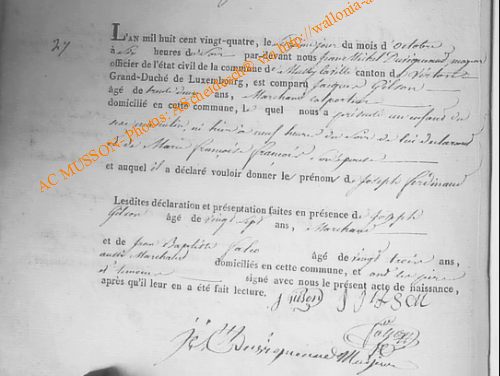 27
L'AN mil huit cent vingt-quatre, le jour du mois d'octobre
à six heures de soir par-devant nous Jean Michel mayeur
officier de l'état civil de la commune de Mussy la ville canton de Virton
Grand-Duché de Luxembourg, est comparu Jacques Gilson
âgé de trente ans, Marchand colporteur
domicilié en cette commune, le quel nous a présenté un enfant du
sexe masculin, né hier à neuf heures du soir de lui déclarant
et de Marie françoise son épouse
et auquel il a déclaré vouloir donner les prénoms de Joseph ferdinand
Lesdites déclaration et présentation faites en présence de Joseph
Gilson âgé de vingt sept ans, Marchand
et de Jean Baptiste âgé de vingt trois ans,
aussi Marchand domiciliés en cette commune, et ont les père
et témoins signé avec nous le présent acte de naissance,
après qu'il leur en a été fait lecture.
J Gilson J J LSON
Mayeur
AC MUSSON - Photos: A via http://wallonia-a